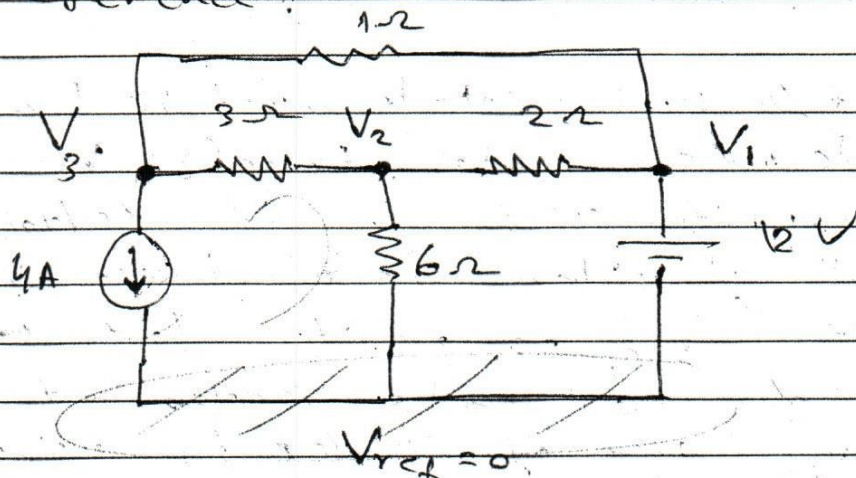 1Ω
3Ω V₂ 2Ω
V₃ V₁
4A 6Ω 12 V
Vref = 0